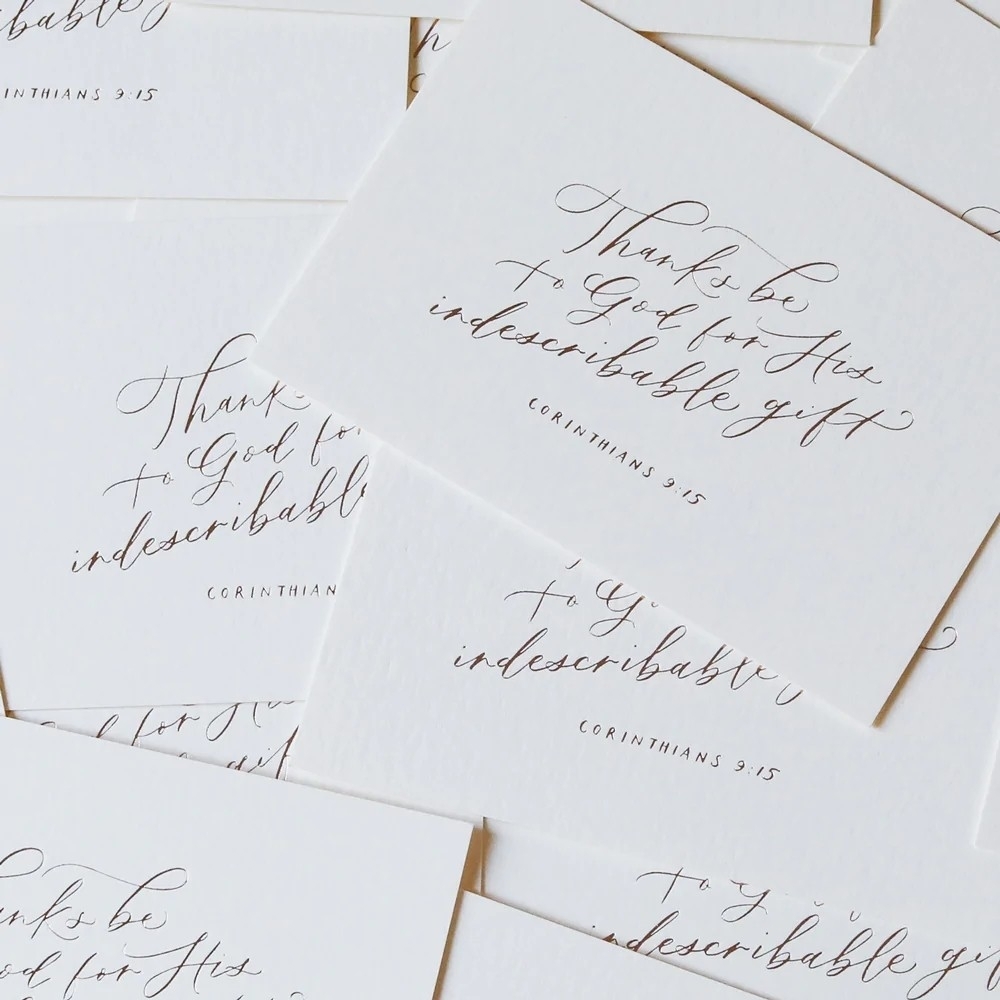 bable
INTHIANS 9:15
Thanks be
to God for His
indescribable gift
CORINTHIANS 9:15
Thank
to God for
indescribable
CORINTHIAN
to G
indescribable
CORINTHIANS 9:15
d for Hi
gif
nks be
od for His
to
indescribable gif